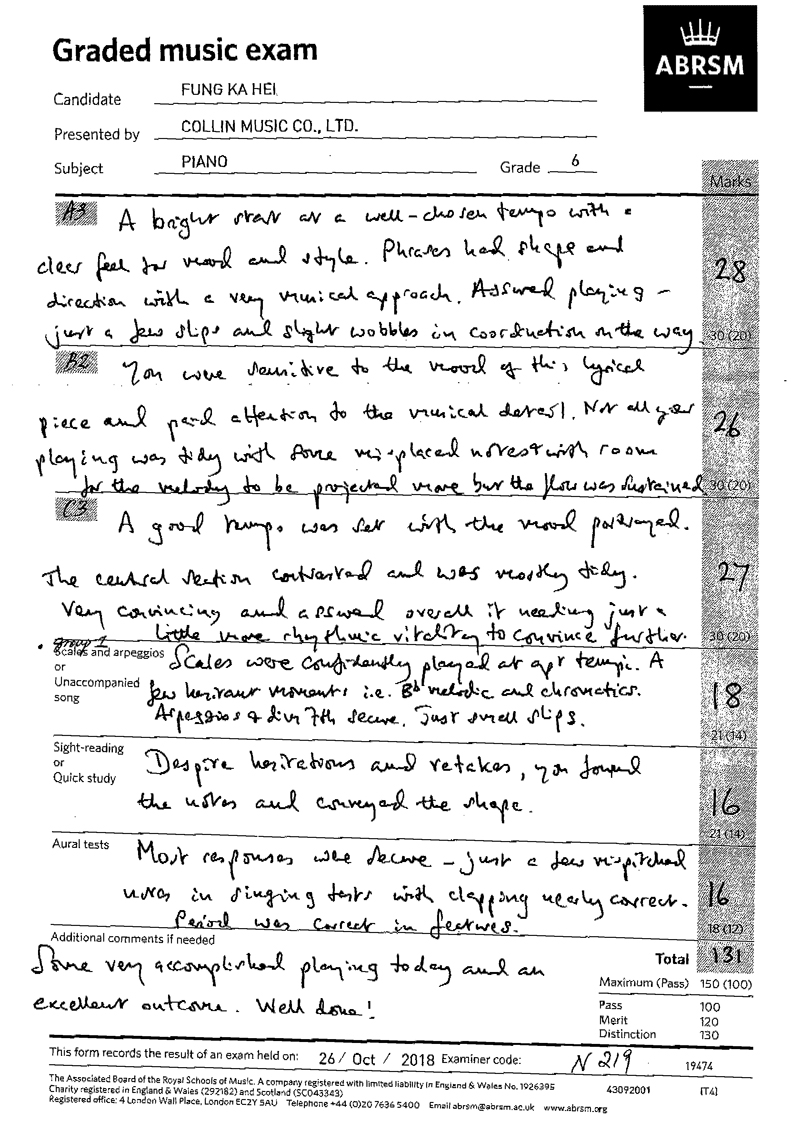 Graded music exam
ABRSM
Candidate FUNG KA HEI
Presented by COLLIN MUSIC CO., LTD.
Subject PIANO Grade 6
Marks
A3 A bright start at a well-chosen tempo with a
clear feel for mood and style. Phrases had shape and
direction with a very musical approach. Assured playing -
just a few slips and slight wobbles in coordination on the way.
28
30 (20)
B2 You were sensitive to the mood of this lyrical
piece and paid attention to the musical detail. Not all your
playing was tidy with some mis-placed notes & with room
for the melody to be projected more but the flow was sustained
26
30 (20)
C3 A good tempo was set with the mood portrayed.
The central section contrasted and was mostly tidy.
Very convincing and assured overall it needing just a
little more rhythmic vitality to convince further.
27
30 (20)
group 1
Scales and arpeggios
or
Unaccompanied
song
Scales were confidently played at apt tempi. A
few hesitant moments i.e. Bb melodic and chromatics.
Arpeggios & dim 7th secure. Just small slips.
18
21 (14)
Sight-reading
or
Quick study
Despite hesitations and retakes, you found
the notes and conveyed the shape.
16
21 (14)
Aural tests
Most responses were secure - just a few mispitched
notes in singing tests with clapping nearly correct.
Period was correct in features.
16
18 (12)
Additional comments if needed
Some very accomplished playing today and an
excellent outcome. Well done!
Total 131
Maximum (Pass) 150 (100)
Pass 100
Merit 120
Distinction 130
This form records the result of an exam held on: 26 / Oct / 2018 Examiner code: N 219 19474
The Associated Board of the Royal Schools of Music. A company registered with limited liability in England & Wales No. 1926395
Charity registered in England & Wales (292182) and Scotland (SC043343) 43092001 (T4)
Registered office: 4 London Wall Place, London EC2Y 5AU Telephone +44 (0)20 7636 5400 Email abrsm@abrsm.ac.uk www.abrsm.org